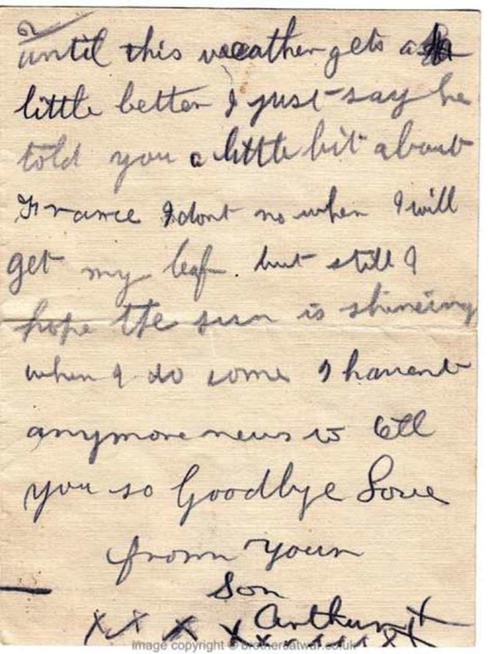 2
until this weather gets a
little better I just say he
told you a little bit about
France I dont no when I will
get my leaf. but still I
hope the sun is shineing
when I do come I havent
anymore news to tell
you so Goodbye Love
from your
Son
Arthur X
X X X X X X X X X X X
image copyright © brothersatwar.co.uk